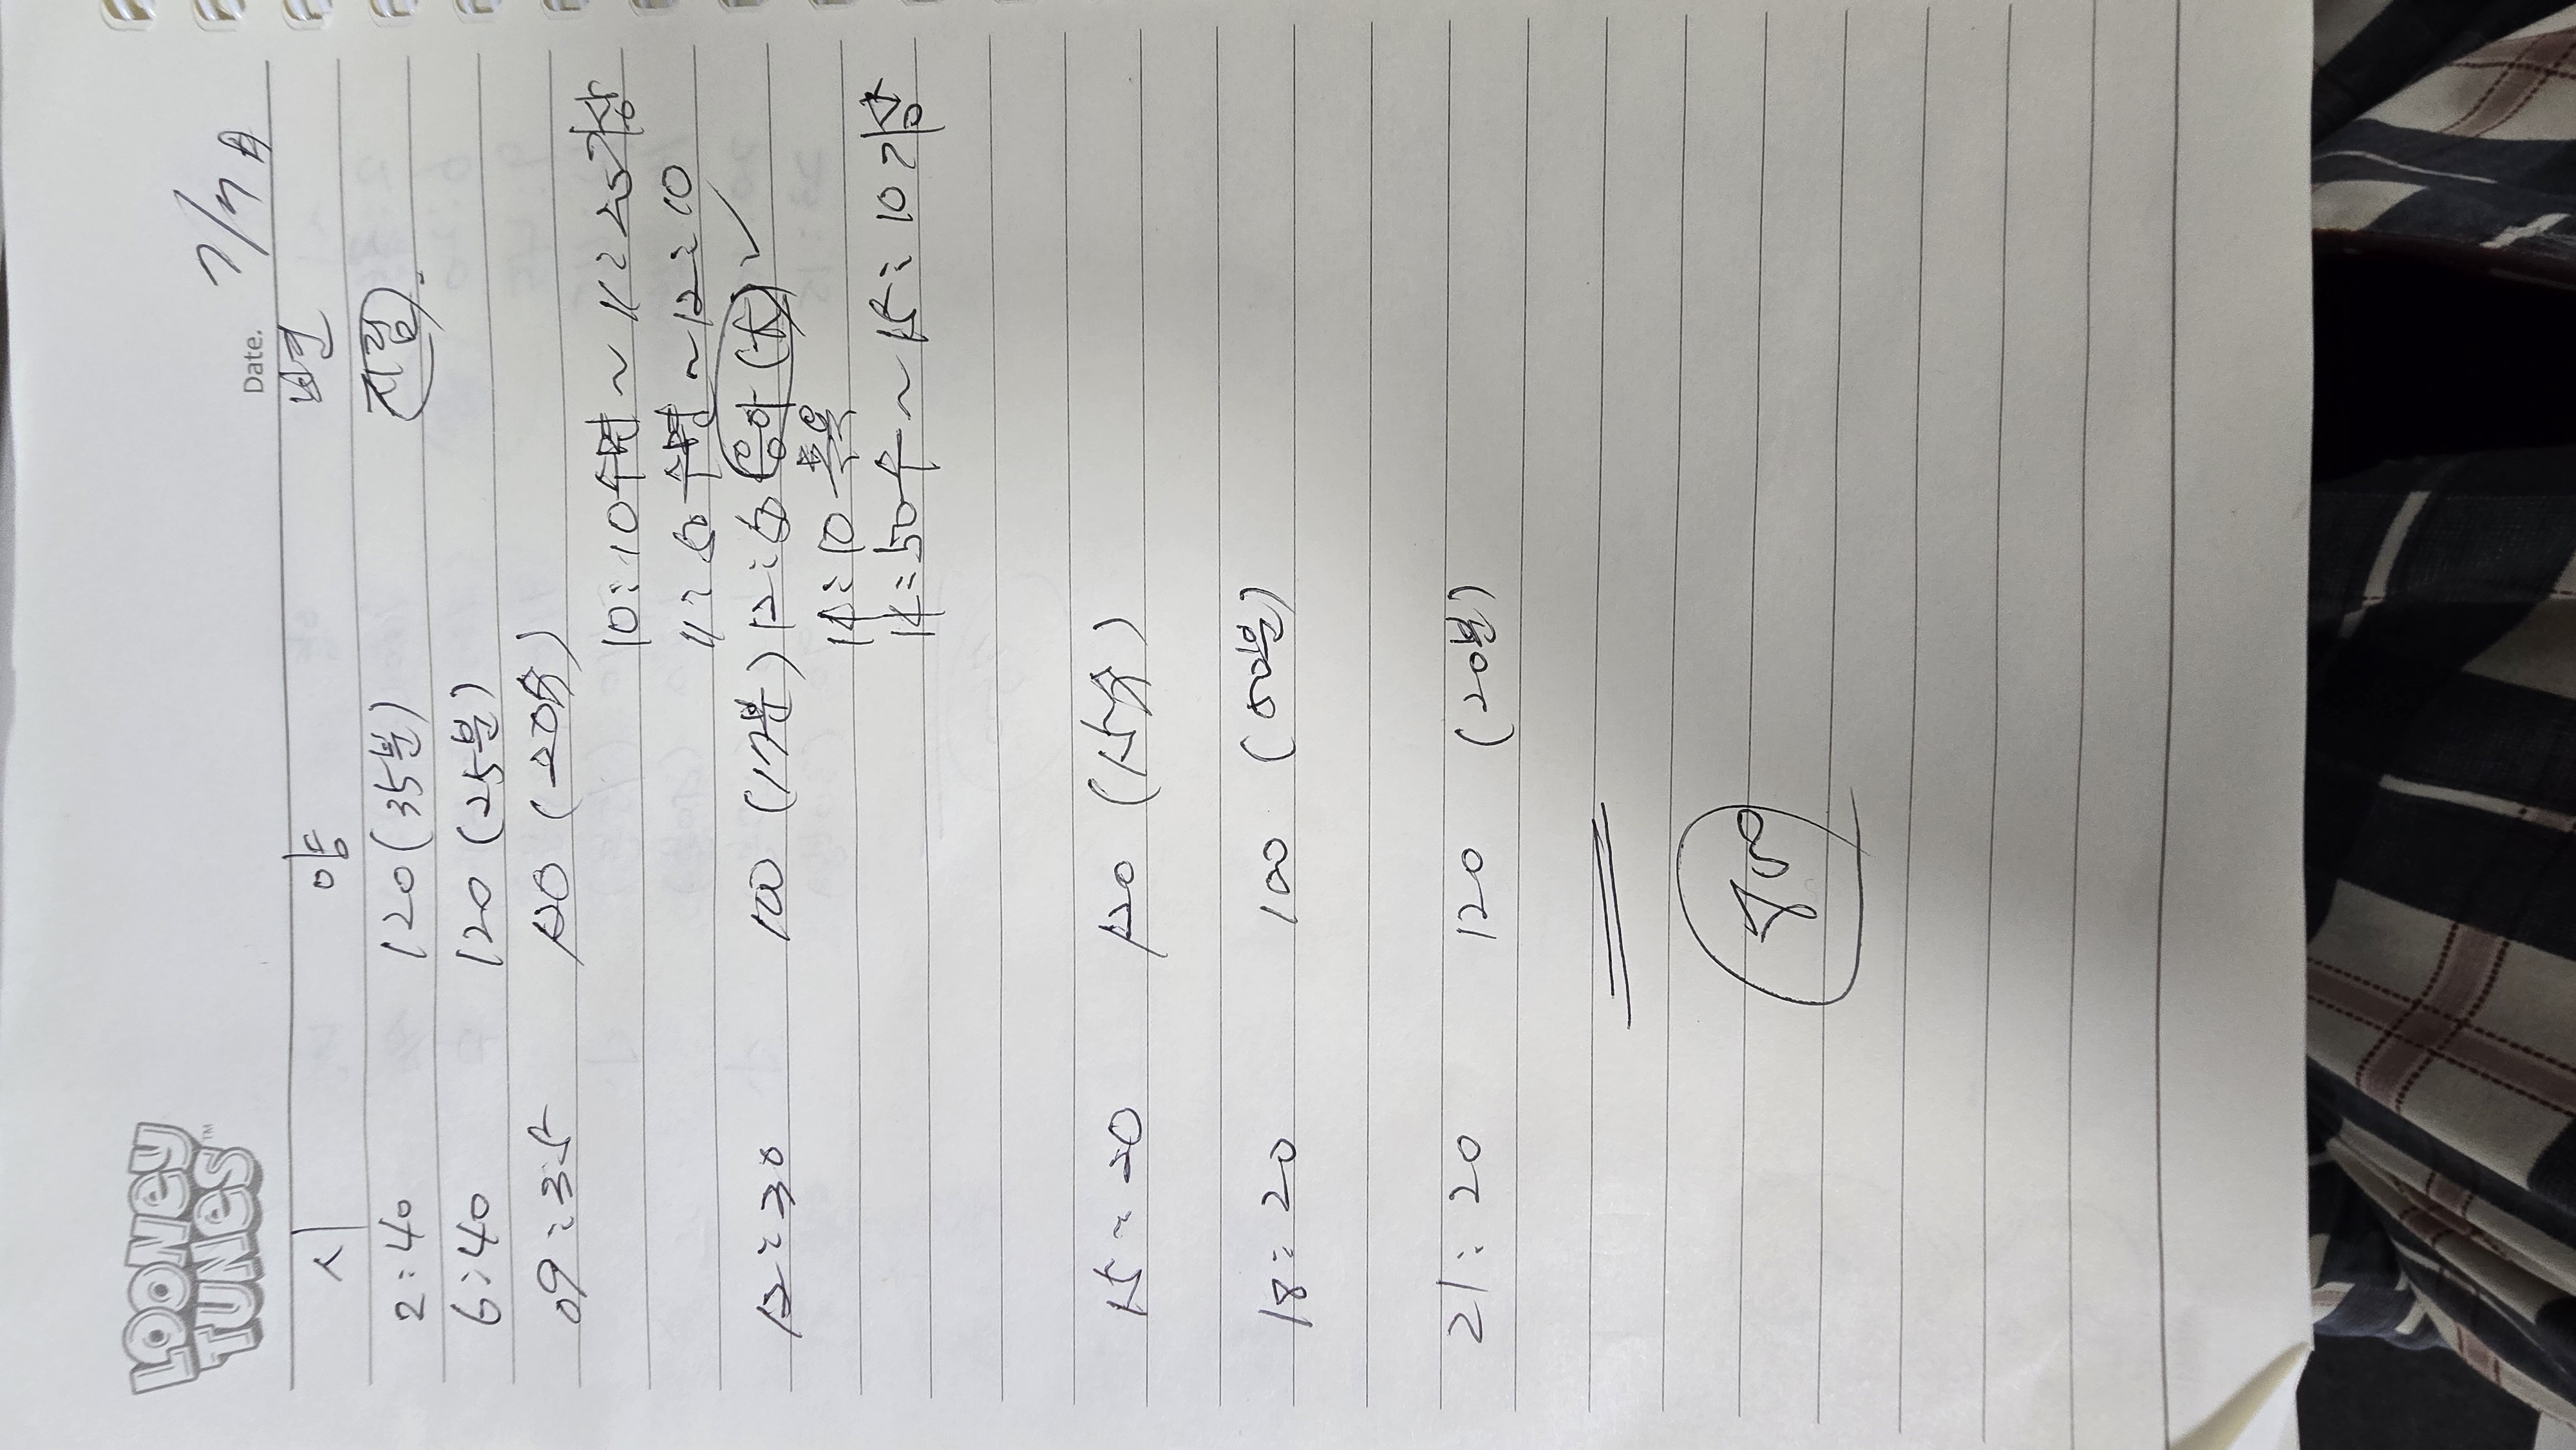 LOONEY TUNES™
Date. 7/7 A
시 맘 변
2:40 120 (35분) 지림
6:40 120 (25분)
09:35 120 (20分)
10:10 수면 ~ 11:25 기상
11:50 수면 ~ 12:10
12:30 100 (17분) 12:50 응아 (大) ✓
14:10 목욕
14:50 수 ~ 15:10 기상
15:20 120 (15分)
18:20 100 (50분)
21:20 120 (20분)
800